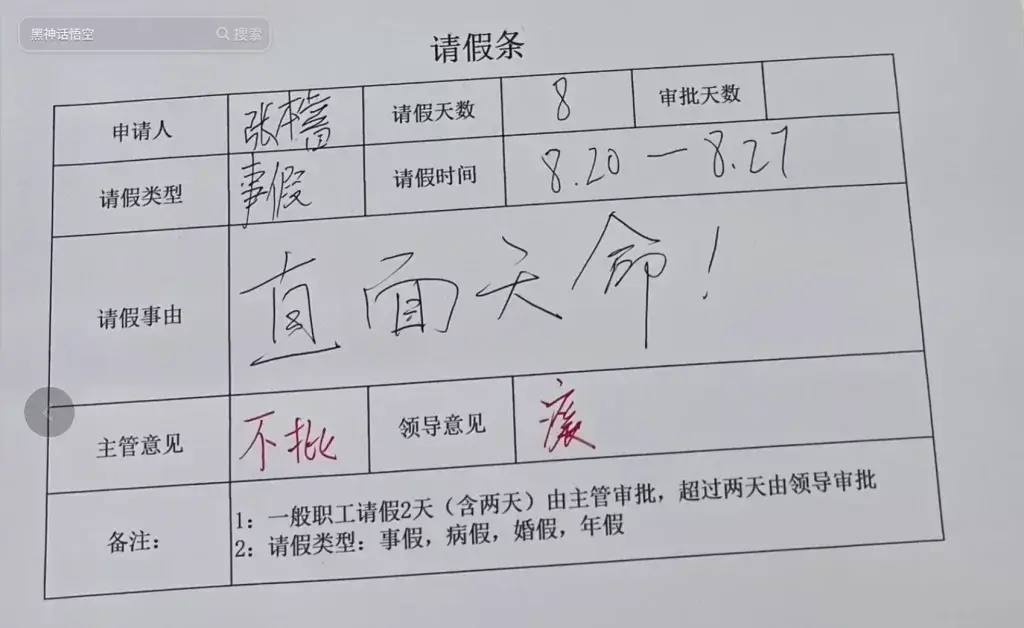 黑神话悟空 搜索
请假条
申请人 张本 请假天数 8 审批天数
请假类型 事假 请假时间 8.20 — 8.27
请假事由 直面天命!
主管意见 不批 领导意见
备注: 1: 一般职工请假2天(含两天)由主管审批,超过两天由领导审批
2: 请假类型: 事假,病假,婚假,年假